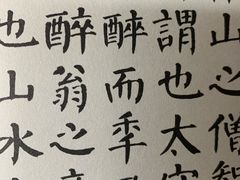 山之僧智
謂也太守
醉而秊
醉翁之意
也山水